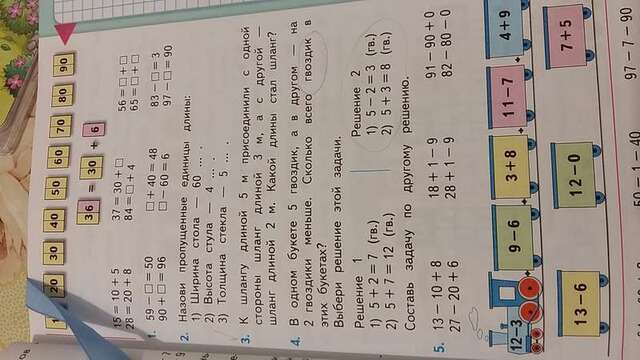 20 30 40 50 60 70 80 90
36 = 30 + 6
15 = 10 + 5 37 = 30 + □ 56 = □ + □
28 = 20 + 8 84 = □ + 4 65 = □ + □
1. 59 − □ = 50 □ + 40 = 48 83 − □ = 3
90 + □ = 96 □ − 60 = 6 97 − □ = 90
2. Назови пропущенные единицы длины:
1) Ширина стола — 60 ... .
2) Высота стула — 4 ... .
3) Толщина стекла — 5 ... .
3. К шлангу длиной 5 м присоединили с одной
стороны шланг длиной 3 м, а с другой —
шланг длиной 2 м. Какой длины стал шланг?
4. В одном букете 5 гвоздик, а в другом — на
2 гвоздики меньше. Сколько всего гвоздик в
этих букетах?
Выбери решение этой задачи.
Решение 1 Решение 2
1) 5 + 2 = 7 (гв.) 1) 5 − 2 = 3 (гв.)
2) 5 + 7 = 12 (гв.) 2) 5 + 3 = 8 (гв.)
Составь задачу по другому решению.
5. 13 − 10 + 8 18 + 1 − 9 91 − 90 + 0
27 − 20 + 6 28 + 1 − 9 82 − 80 − 0
12−3 9−6 3+8 11−7 4+9
13−6 12−0 7+5
50 − 1 − 40 97 − 7 − 90